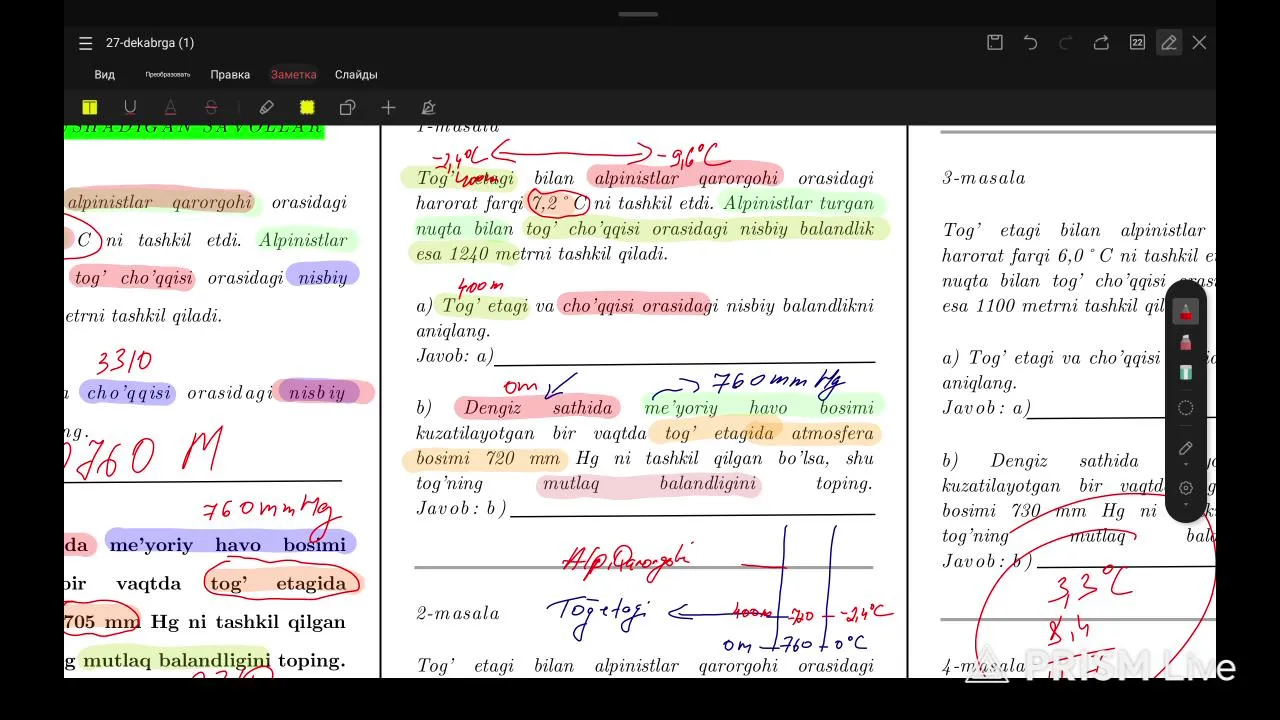 27-dekabrga (1)
22
Вид
Преобразовать
Правка
Заметка
Слайды
SHADIGAN SAVOLLAR
alpinistlar qarorgohi orasidagi
C ni tashkil etdi. Alpinistlar
tog' cho'qqisi orasidagi nisbiy
etrni tashkil qiladi.
3310
a cho'qqisi orasidagi nisbiy
ng.
0760 M
760mmHg
da me'yoriy havo bosimi
bir vaqtda tog' etagida
705 mm Hg ni tashkil qilgan
g mutlaq balandligini toping.
1-masala
-2,4°C
-9,6°C
Tog' etagi bilan alpinistlar qarorgohi orasidagi
harorat farqi 7,2°C ni tashkil etdi. Alpinistlar turgan
nuqta bilan tog' cho'qqisi orasidagi nisbiy balandlik
esa 1240 metrni tashkil qiladi.
400m
a) Tog' etagi va cho'qqisi orasidagi nisbiy balandlikni
aniqlang.
Javob: a)
0m
760mmHg
b) Dengiz sathida me'yoriy havo bosimi
kuzatilayotgan bir vaqtda tog' etagida atmosfera
bosimi 720 mm Hg ni tashkil qilgan bo'lsa, shu
tog'ning mutlaq balandligini toping.
Javob: b)
Alp.Qarorgohi
Tog etagi
400m
720
-2,4°C
0m
760
0°C
2-masala
Tog' etagi bilan alpinistlar qarorgohi orasidagi
3-masala
Tog' etagi bilan alpinistlar
harorat farqi 6,0°C ni tashkil e
nuqta bilan tog' cho'qqisi oras
esa 1100 metrni tashkil qil
a) Tog' etagi va cho'qqisi
aniqlang.
Javob: a)
b) Dengiz sathida
kuzatilayotgan bir vaqt
bosimi 730 mm Hg ni
tog'ning mutlaq bal
Javob: b)
3,3°C
8,4
4-masala
PRISM Live